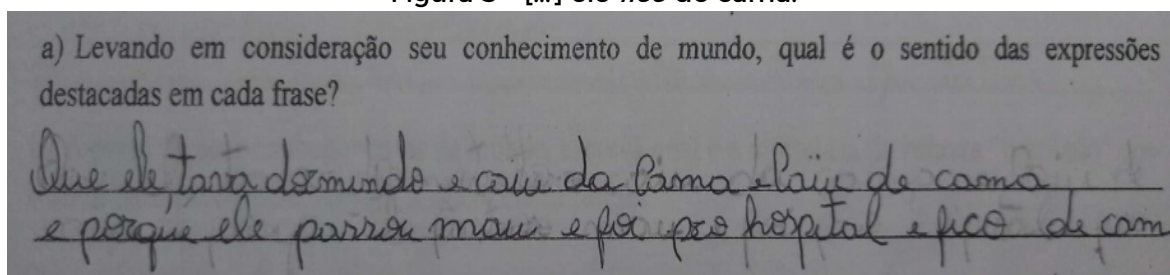 a) Levando em consideração seu conhecimento de mundo, qual é o sentido das expressões
destacadas em cada frase?
Que ele tava dormindo e caiu da cama e Caiu de cama
e porque ele passou mau e foi pro hospital e fico de cam